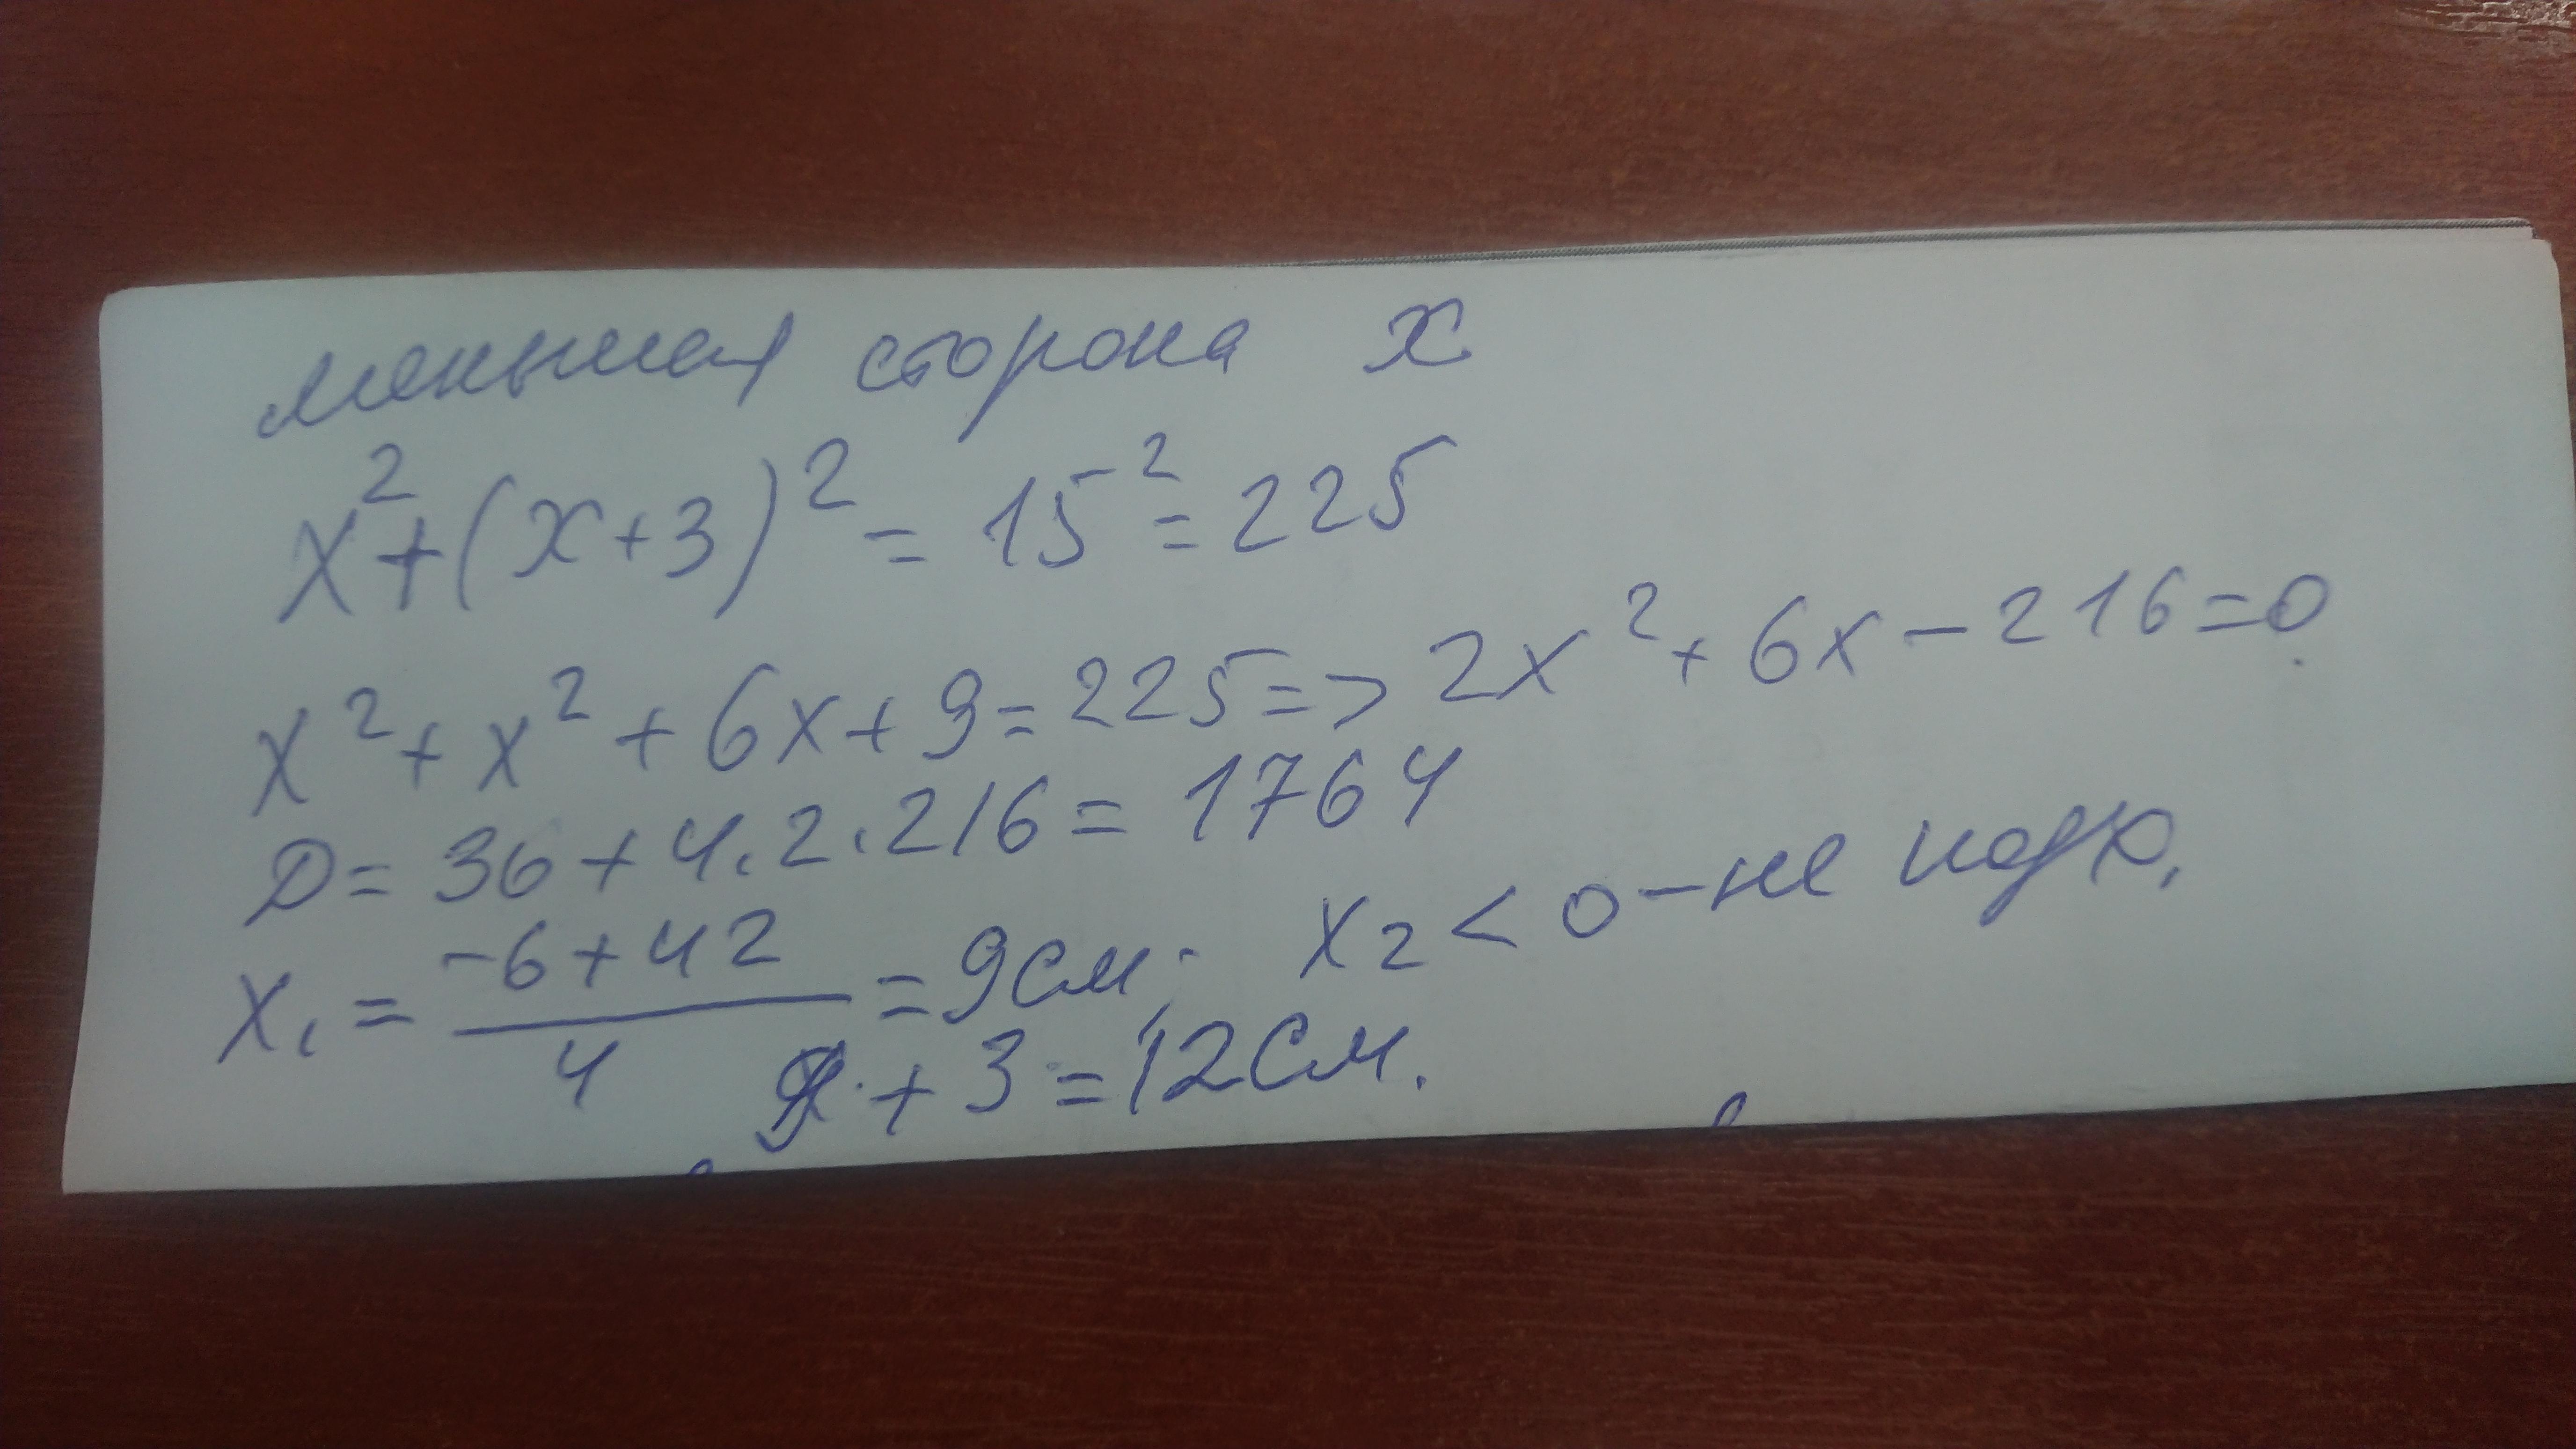 меньшая сторона x
x² + (x+3)² = 15² = 225
x² + x² + 6x + 9 = 225 => 2x² + 6x - 216 = 0
D = 36 + 4 · 2 · 216 = 1764
x₁ = (-6+42)/4 = 9 см; x₂ < 0 - не
9 + 3 = 12 см.